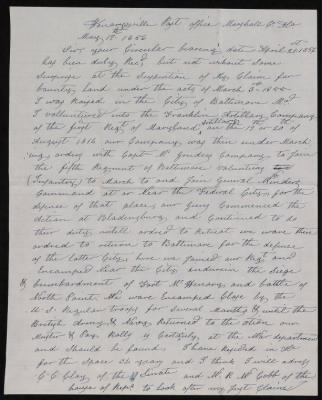 Warrenville Post office Marshall Co Ala
May 19th 1856
Sir your Circular bearing date April 21st 1856
has been duly Recd, but not without Some
Surprise at the Suspention of my Claim for
bounty Land under the acts of March 3 1855
I was Raised in the City of Baltimore Md
I vallunteerd into the Franklin Artillery Company
of the first Regt of Maryland, on the 19 or 20 of
August 1814 our Company was then under March
ing ordrs with Capt Company to Join
the fifth Regiment of Baltimore vallunteers
(Infantry) to march to and Join General Winders
Command at or Near the Federal City for the
defense of that place, our firing Commenced the
action at Bladensburg, and Continued to do
their duty untill ordred to Retreat we ware then
ordred to return to Baltimore for the defense
of the Latter City, here we Joined our Regt and
Encamped Near the City, endureing the Siege
& bumbardment of Fort McHenry and battle of
North Point. We ware Encamped Close by the
U S. Regular troops for Several Months & untill the
British Army & Navy Returned to the Ocean our
Muster & Pay Rolls is Certainly at the War department
and Should be found, I have Resided in
for the Space 36 years and I think I will adress
C C Clay of the U Senate and W. R. W Cobb of the
house of Reps to Look after my Just Claims